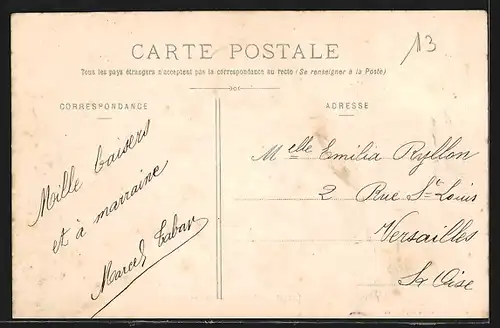 CARTE POSTALE
13
Tous les pays étrangers n'acceptent pas la correspondance au recto (Se renseigner à la Poste)
CORRESPONDANCE
ADRESSE
Mille baisers
et à marraine
Marcel
Melle Emilia Ryllon
2 Rue St Louis
Versailles
S et Oise